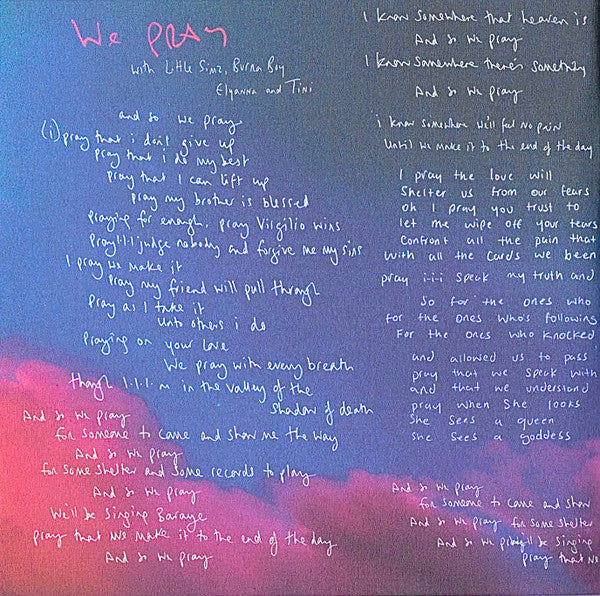 We PRAY
with Little Simz, Burna Boy
Elyanna and Tini
and so we pray
(i) pray that i don't give up
pray that i do my best
pray that I can lift up
pray my brother is blessed
praying for enough, pray Virgilio wins
Pray I-I-I judge nobody and forgive me my sins
I pray we make it
pray my friend will pull through
Pray as I take it
Unto others i do
Praying on your love
We pray with every breath
though I-I-I-m in the valley of the
shadow of death
And so we pray
for someone to come and show me the way
And so we pray
for some shelter and some records to play
And so we pray
We'll be singing Baraye
pray that we make it to the end of the day
And so we pray
I know somewhere that heaven is
And so we pray
I know somewhere there's something
And so we pray
i know somewhere we'll feel no pain
Until we make it to the end of the day
I pray the love will
Shelter us from our fears
oh I pray you trust to
let me wipe off your tears
Confront all the pain that
with all the cards we been
pray i-i-i speak my truth and
so for the ones who
for the ones who's following
For the ones who knocked
and allowed us to pass
pray that we speak with
and that we understand
pray when she looks
she sees a queen
she sees a goddess
And so we pray
for someone to come and show
And so we pray for some shelter
And so we pray we'll be singing
pray that we